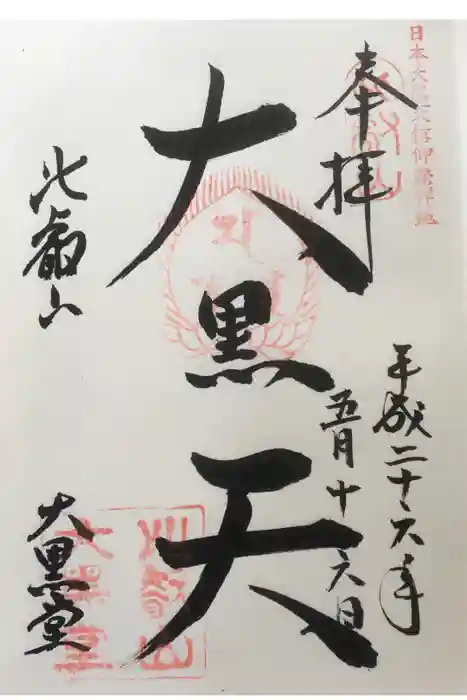 日本大黒天信仰発祥地
奉拝
平成二十六年
五月十六日
大黒天
比叡山
大黒堂
比叡山
大黒堂